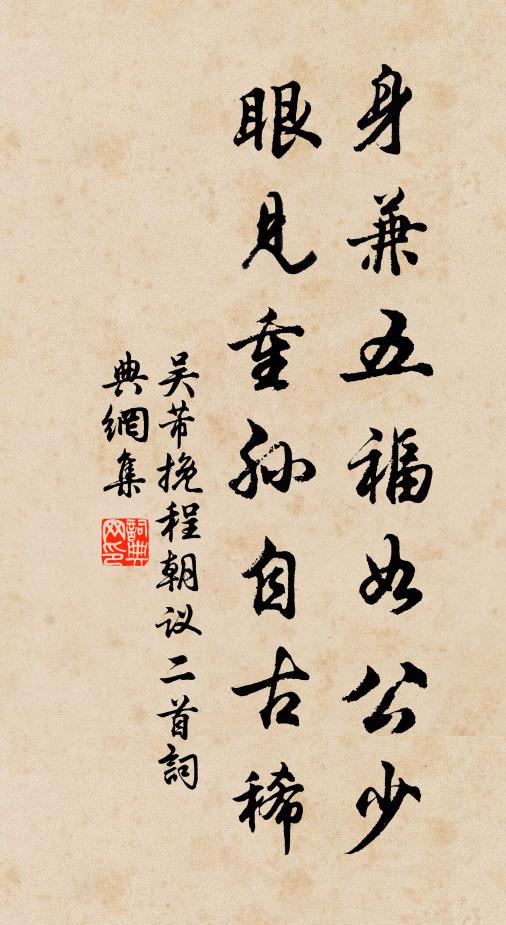 身兼五福如公少
眼見重孙自古稀
吴芾挽程朝议二首詞
典網集
詞典
网印